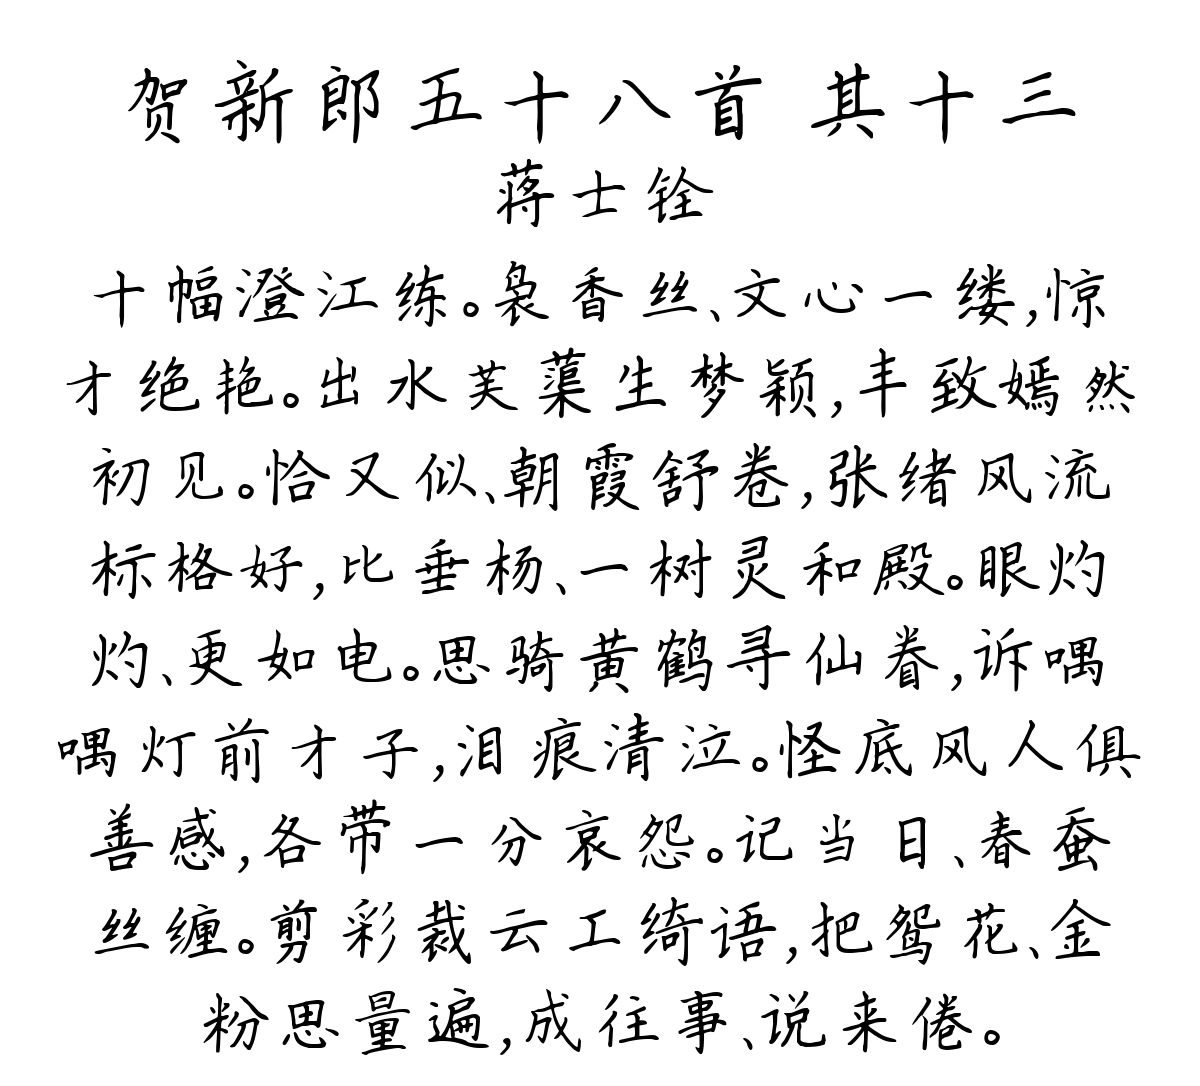 贺新郎五十八首 其十三
蒋士铨
十幅澄江练。袅香丝、文心一缕,惊
才绝艳。出水芙蕖生梦颖,丰致嫣然
初见。恰又似、朝霞舒卷,张绪风流
标格好,比垂杨、一树灵和殿。眼灼
灼、更如电。思骑黄鹤寻仙眷,诉喁
喁灯前才子,泪痕清泣。怪底风人俱
善感,各带一分哀怨。记当日、春蚕
丝缠。剪彩裁云工绮语,把鸳花、金
粉思量遍,成往事、说来倦。